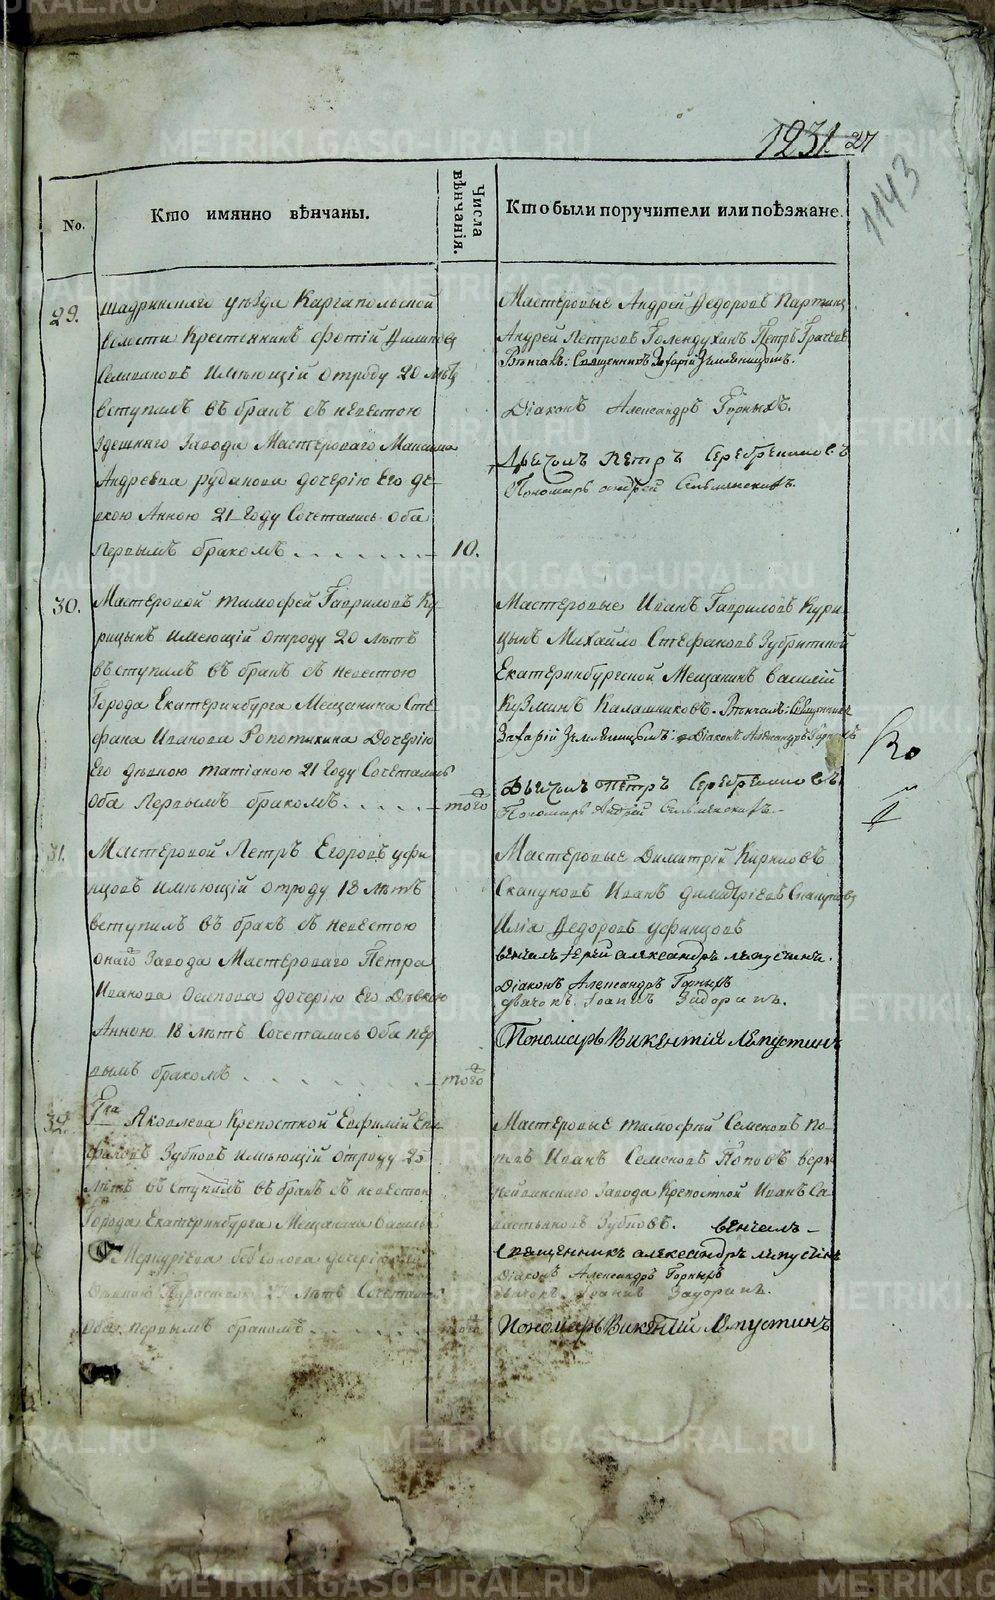 1231. 27
1143
No.
Кто имянно вѣнчаны.
Числа вѣнчанія.
Кто были поручители или поѣзжане.
29.
Шадринскаго уѣзда Каргапольской
волости Крестьянинъ Фотій
Селивановъ имѣющій отроду 20 лѣтъ
вступилъ въ бракъ съ невестою
Здешняго Завода Мастероваго
Андреева Рудакова дочерію Его де-
вкою Анною 21 Году Сочетались оба
первымъ бракомъ
10.
Мастеровые Андрей Федоровъ
Андрей Петровъ Голендухинъ Петръ Грачевъ
Венчалъ: Священникъ Захарій Земляницынъ.
Діаконъ Александръ Горныхъ.
Дьячокъ Петръ Серебренниковъ
Пономарь Андрей Сельменскихъ.
30.
Мастеровой Тимофей Гавриловъ Ку-
рицынъ имеющій отроду 20 лѣтъ
въступилъ въ бракъ съ невестою
Города Екатеринбурга Мещанина Сте-
фана Иванова дочерію
Его дѣвкою Татіаною 21 Году Сочетались
оба первымъ бракомъ
того
Мастеровые Иванъ Гавриловъ Кури-
цынъ Михайло Стефановъ Зубрицкой
Екатеринбургской Мещанинъ Василій
Кузминъ Калашниковъ. Венчалъ: Священникъ
Захарій Земляницынъ: Діаконъ Александръ Горныхъ
Дьячокъ Петръ Серебренниковъ
Пономарь Андрей Сельменскихъ
31.
Мастеровой Петръ Егоровъ Уфи-
нцовъ имѣющій отроду 18 лѣтъ
вступилъ въ бракъ съ невестою
онаго Завода Мастероваго Петра
Иванова Осипова дочерію Его Дѣвкою
Анною 18 лѣтъ Сочетались оба пер-
вымъ бракомъ
того
Мастеровые Димитрій Кириловъ
Скакуновъ Иванъ Димитріевъ Скакуновъ
Илія Федоровъ Уфинцовъ
венчалъ Іерей Александръ Лепустинъ.
Діаконъ Александръ Горныхъ
дьячокъ Іоаннъ Задоринъ.
Пономарь Викентій Лепустинъ
32.
Гна Яковлева Крепостной Евфимій
Зубковъ имѣющій отроду 25
лѣтъ въступилъ въ бракъ съ невестою
Города Екатеринбурга Мещанина Василья
Меркуріева дочерію
Дѣвкою Параскевою лѣтъ Сочетались
оба первымъ бракомъ
того
Мастеровые Тимофѣй Семеновъ По-
повъ Иванъ Семеновъ Поповъ верх-
нейвинскаго Завода Крепостной Иванъ Са-
Зубковъ. венчалъ
Священникъ Александръ Лепустинъ
Діаконъ Александръ Горныхъ
дьячокъ Іоаннъ Задоринъ.
Пономарь Викентій Лепустинъ
METRIKI.GASO-URAL.RU